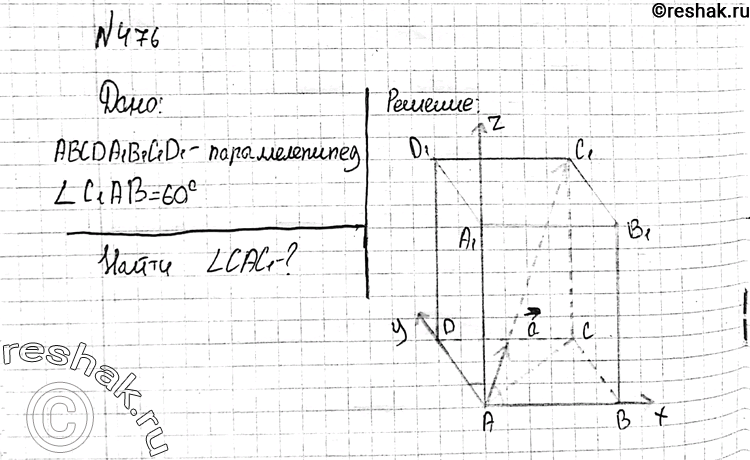 ©reshak.ru
№476
Дано:
ABCDA₁B₁C₁D₁ - параллелепипед
∠C₁AB=60°
Найти ∠CAC₁-?
Решение:
Z
D₁
C₁
A₁
B₁
y
D
a
C
A
B
x
reshak.ru
©